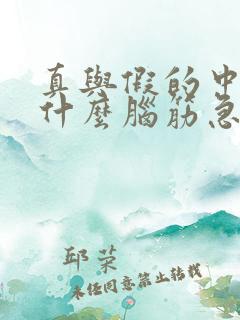 真與假的中
什麼腦筋急
邱菜
未经同意禁止转载